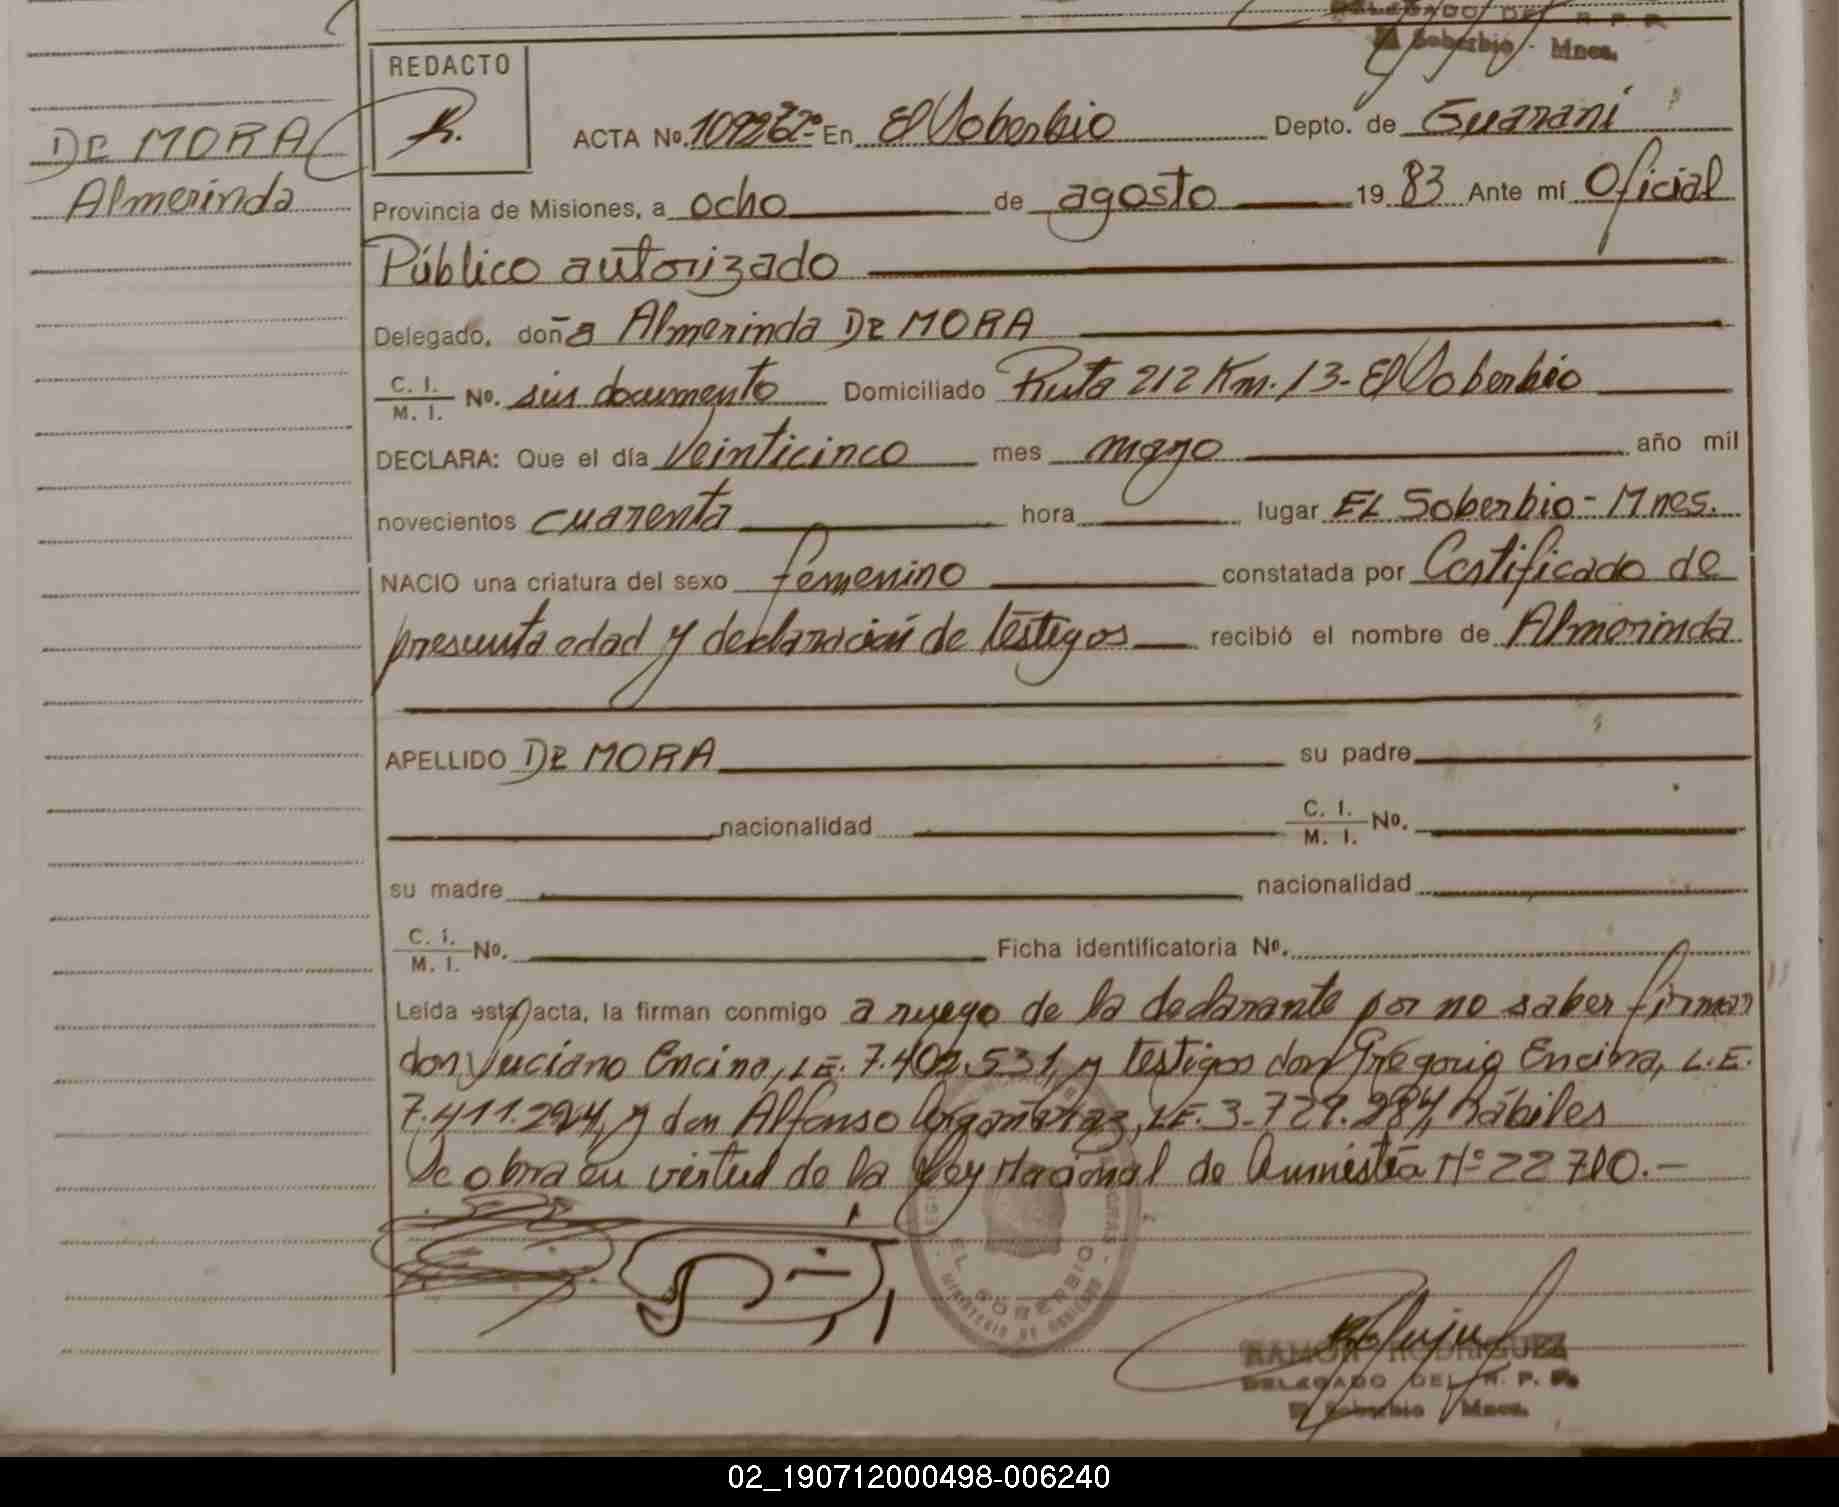 DELEGADO DEL R. P. P.
El Soberbio - Mnes.
REDACTO
R.
DE MORA
Almerinda
ACTA No. En El Soberbio Depto. de Guaraní
Provincia de Misiones, a ocho de agosto 19 83 Ante mí Oficial
Público autorizado
Delegado, doña Almerinda DE MORA
C. I. / M. I. No. sin documento Domiciliado Ruta 212 Km. 13 - El Soberbio
DECLARA: Que el día veinticinco mes mayo año mil
novecientos cuarenta hora lugar EL Soberbio - Mnes.
NACIO una criatura del sexo femenino constatada por Certificado de
presunta edad y declaración de testigos recibió el nombre de Almerinda
APELLIDO DE MORA su padre
nacionalidad C. I. / M. I. No.
su madre nacionalidad
C. I. / M. I. No. Ficha identificatoria No.
Leída esta acta, la firman conmigo a ruego de la declarante por no saber firmar
don Luciano Encina, L.E. 7.402.531, y testigos don Gregorio Encina, L.E.
7.411.294, y don Alfonso L.E. 3.729.284, hábiles
Se obra en virtud de la Ley Nacional de Amnistía Nº 22710.-
EL SOBERBIO
MINISTERIO DE GOBIERNO
RAMON RODRIGUEZ
DELEGADO DEL R. P. P.
El Soberbio Mnes.
02_190712000498-006240